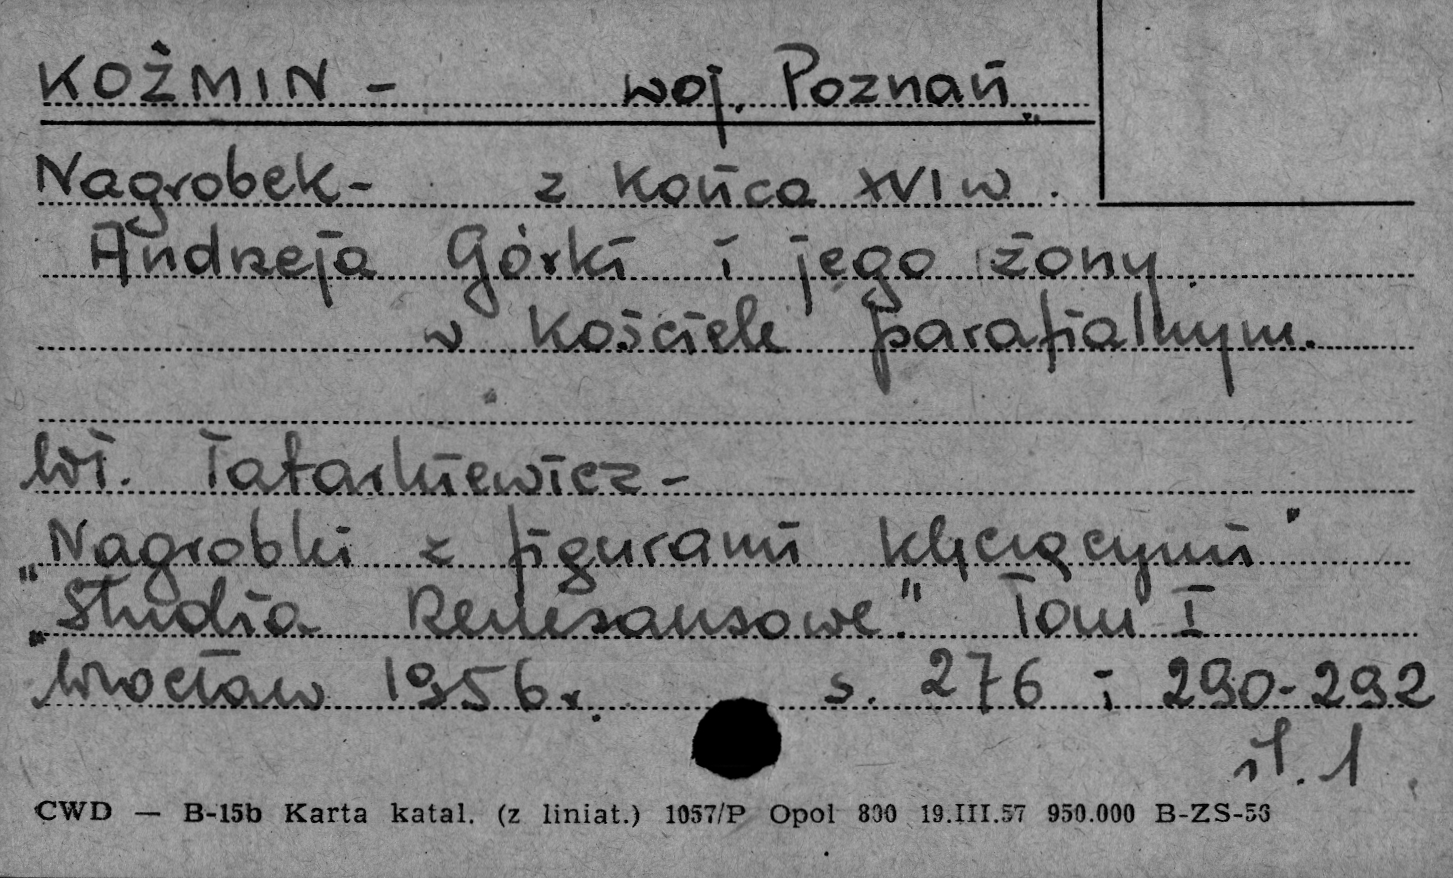 KOŹMIN - woj. Poznań
Nagrobek - z końca XVI w.
Andrzeja Górki i jego żony
w kościele parafialnym.
Wł. Tatarkiewicz -
"Nagrobki z figurami klęczącymi"
"Studia Renesansowe." Tom I
Wrocław 1956 r. s. 276 i 290-292
il. 1
CWD — B-15b Karta katal. (z liniat.) 1057/P Opol 830 19.III.57 950.000 B-ZS-53